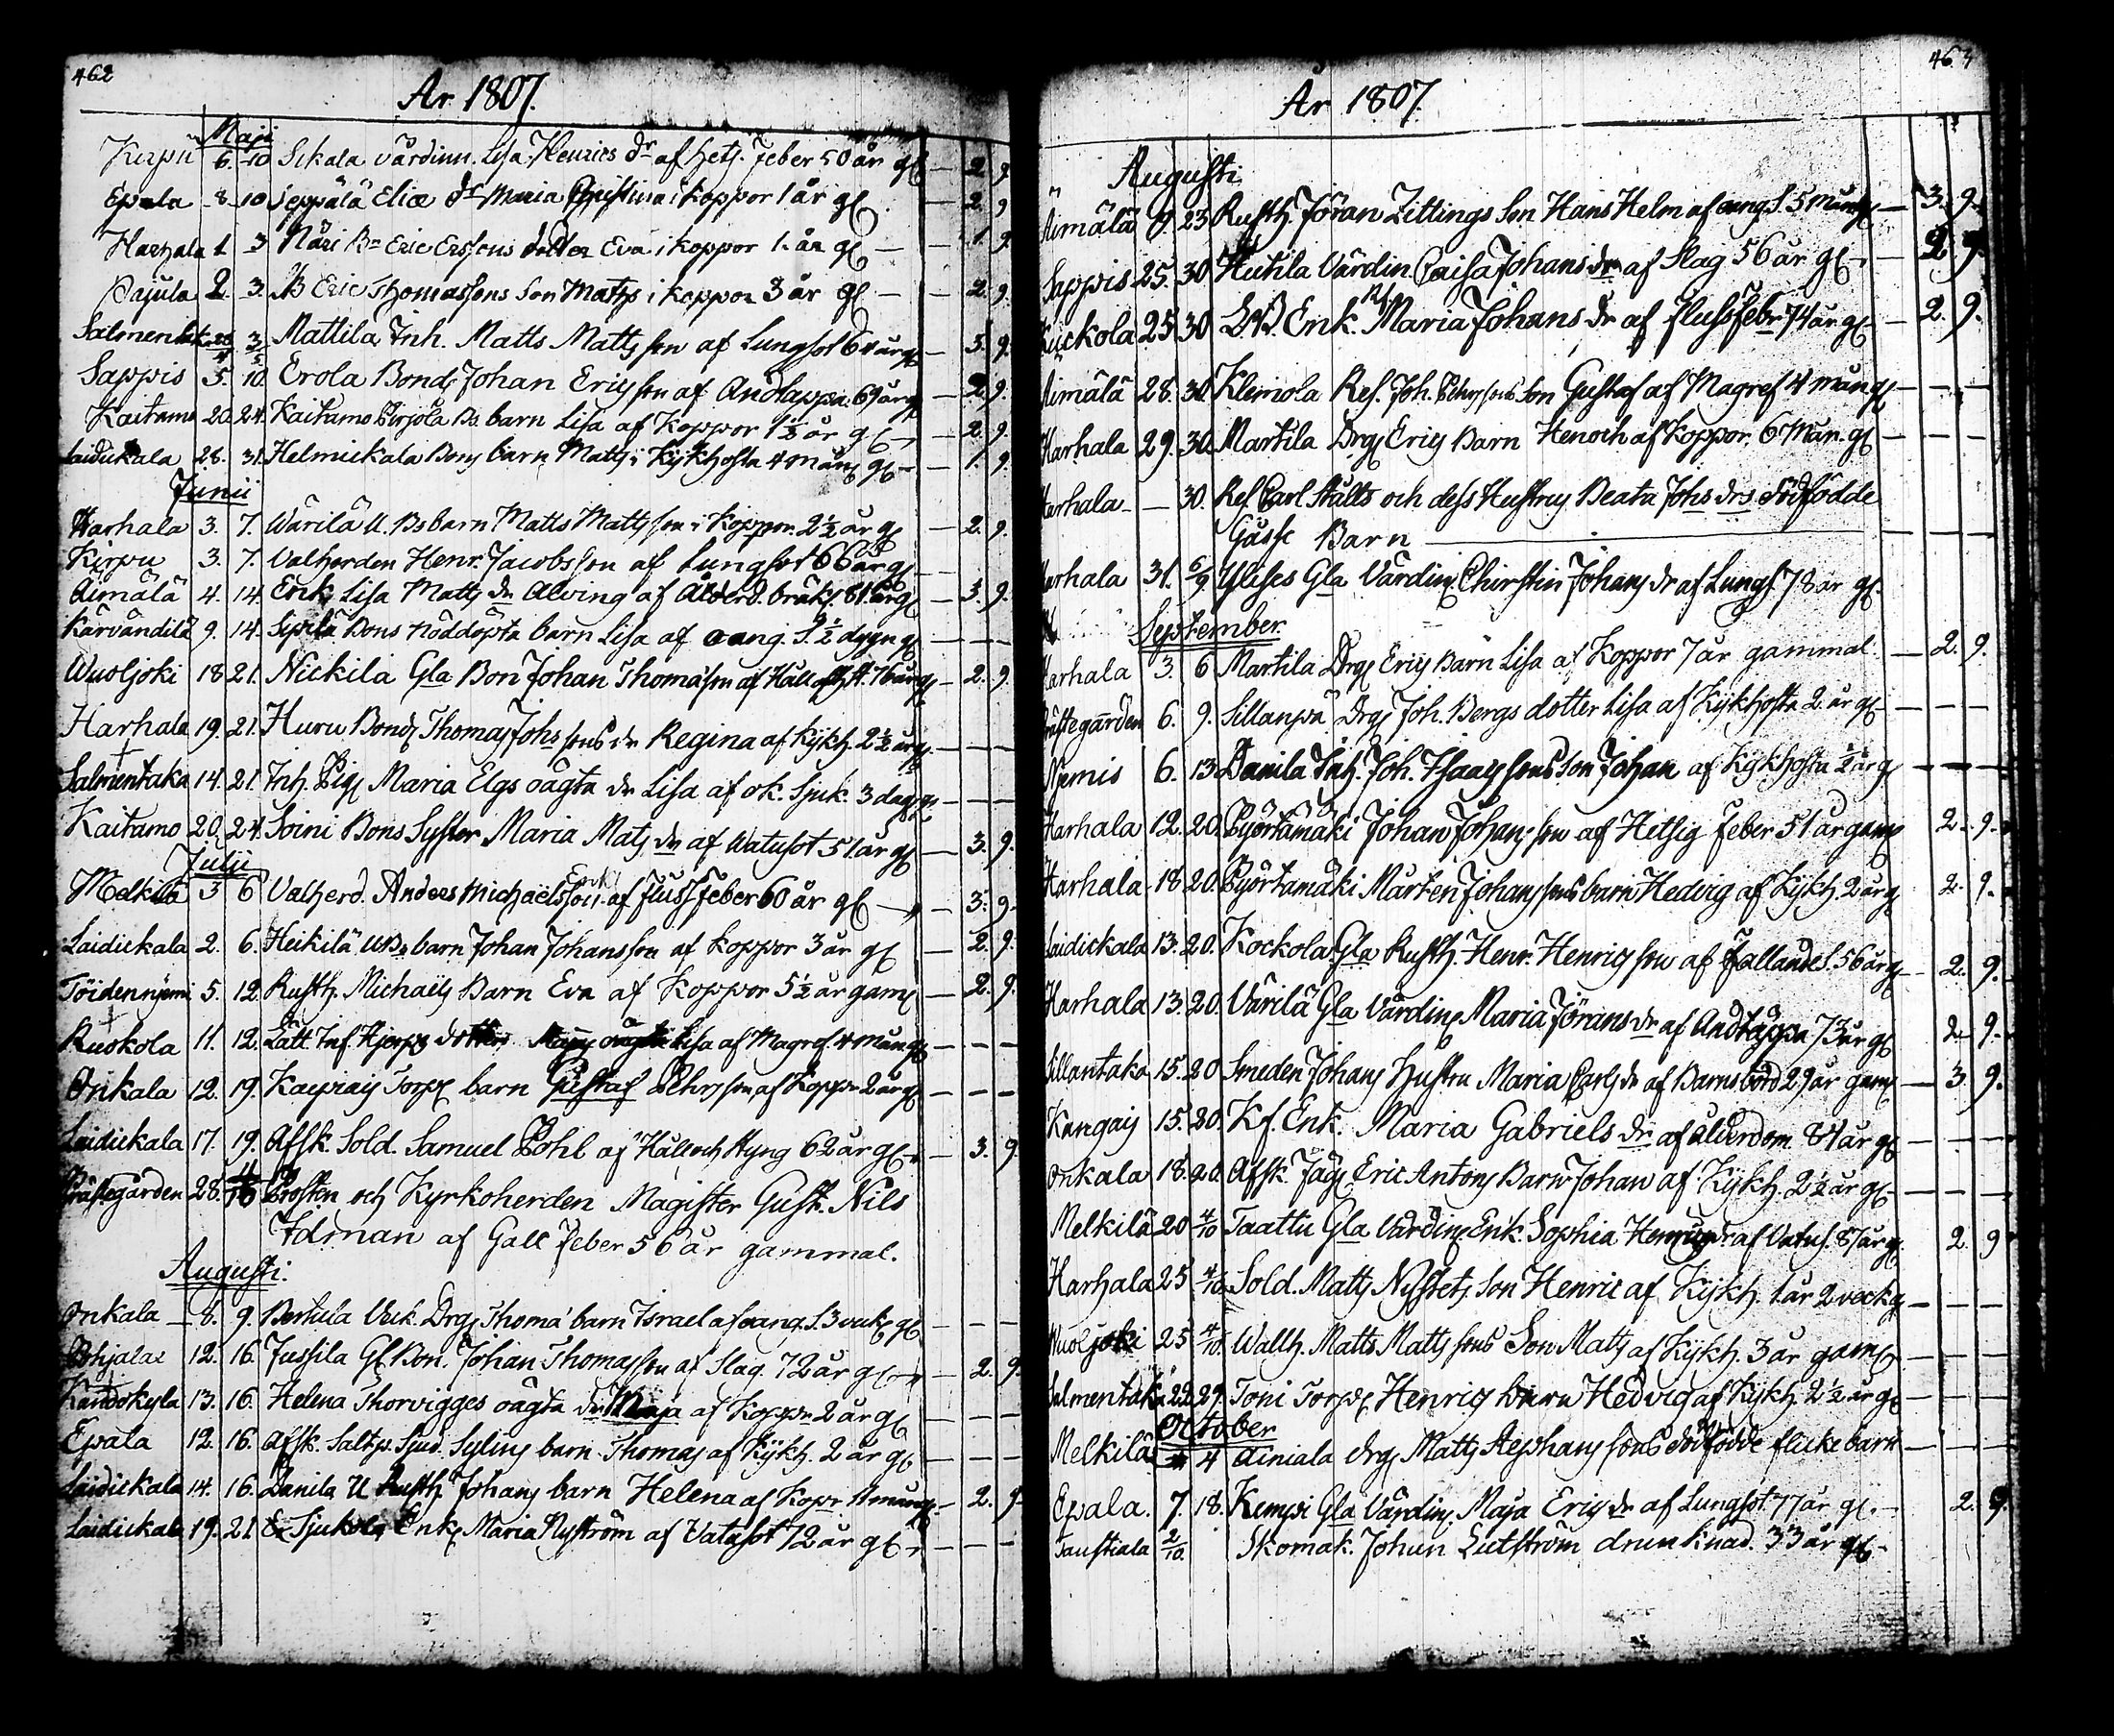 462
År 1807.
Maji
Kirpu 6. 10 Sikala värdinn. Lisa Henrics dr af hets. Feber 50 år gl — 2. 9.
Epala 8. 10 Seppälä Eliæ dr Maria Christina i koppor 1 år gl — 2. 9
Harhala 1 3 Näri Bn Eric Ersssons dotter Eva i koppor 1. år gl — 1. 9.
Pajula 2. 3. Eric Thomassons Son Matts i koppor 3 år gl — 2. 9.
Mattila Inh. Matts Mattsson af Lungsot 64 år gl — 3. 9.
Sappis 5. 10. Erola Bond. Johan Ericsson af Andtäppa. 69 år gl — 2. 9.
Kaitamo 20. 24. Kaitamo Pirjola Bs. barn Lisa af Koppor 1½ år gl — 2. 9.
Laidickala 28. 31. Helmickala Bons barn Matts i Kykhosta 4 mån gl — 1. 9.
Junii
Harhala 3. 7. Wärilä U. Bs barn Matts Mattsson i koppor. 2½ år gl — 2. 9.
Kirpu 3. 7. Valherden Henr. Jacobsson af Lungsot 66 år gl —
Äimälä 4. 14. Enk. Lisa Matts dr Alving af Ålderd. bräkl. 81 år gl — 3. 9.
Kärvändilä 9. 14. Sipilä Bons nöddöpta barn Lisa af oang. S. ½ dygn gl — — —
Wuoljoki 18 21. Nickila Gla Bon Johan Thomasson af Håll och H. 76 år gl — 2. 9.
Harhala 19. 21. Huru Bond. Thomas Johssons dr Regina af Kykh. 2½ år gl — — —
Salmentaka 14. 21. Inh. Pig. Maria Elgs oägta dr Lisa af ok. Sjuk. 3 dag. gl — — —
Kaitamo 20. 24. Soini Bons Syster Maria Mats dr af Watusot 51 år gl — 3. 9.
Julii
Melkilä 3 6 Valherd. Anders Michaëlsson Enk. af Fluss Feber 60 år gl — 3. 9.
Laidickala 2. 6. Heikilä UBs barn Johan Johansson af koppor 3 år gl — 2. 9.
Töidennjemi 5. 12. Rusth. Michaëls Barn Eva af Koppor 5½ år gam — 2. 9.
Ruokola 11. 12. Lätt Inf. Hjerps dotters Lisa af Magref. 4 mån gl — — —
Onkala 12. 19. Torp. barn Gustaf Pehrsson af Koppr 2 år gl — — —
Laidickala 17. 19. Afsk. Sold. Samuel Pohl af Håll och Styng 62 år gl — 3. 9
Prästegården 28. Prosten och Kyrkoherden Magister Gust. Nils
Idman af Gall Feber 56 år gammal.
Augusti.
Onkala — 8. 9. Bertula Drg. Thoma barn Israel af oang. S. 3 veck. gl — — —
Pohjalai 12. 16. Jussila Gl Bon. Johan Thomasson af Slag. 72 år gl — 2. 9.
Kandokyla 13. 16. Helena Thorvigges oägta dr Maja af Koppr. 2 år gl — — —
Epala 12. 16. Afsk. Saltp. Sjud. Sylins barn Thomas af Kykh. 2 år gl — — —
Laidickala 14. 16. Danila U Rusth. Johans barn Helena af Kopr 11 mån gl — 2. 9
Laidickala 19. 21. Enk. Maria Nyström af Vatusot 72 år gl — — —
463
År 1807.
Augusti
Äimälä 9. 23 Rusth. Jöran Zittings Son Hans Helm af oang. S. 5 mån gl — 3. 9.
Sappis 25. 30 Hutila Värdin Caisa Johans dr af Slag 56 år gl — 2. 9.
Kuckola 25. 30 Enk. Maria Johans dr af flussfebr 74 år gl — 2. 9.
Äimälä 28. 30. Klemola Ref. Joh. Pehrssons Son Gustaf af Magref 4 mån gl — — —
Harhala 29. 30. Martila Drg. Erics Barn Henoch af Koppor. 6 Mån. gl — — —
Harhala — 30. Ref Carl Stålts och dess Hustrus Beata Johs drs dödfödde
Gosse Barn — — —
Harhala 31. 6/9 Ylises Gla Värdin. Chirstin Johans dr af Lungs. 78 år gl.
September
Harhala 3. 6 Martila Drg. Erics Barn Lisa af Koppor 7 år gammal. — 2. 9.
Prästegården 6. 9. Sillanpä Drg. Joh. Bergs dotter Lisa af Kykhosta 2. år gl — — —
Njemis 6. 13 Danila Inh. Joh. Isaacssons Son Johan af Kykhosta ½ år gl — — —
Harhala 12. 20. Pyörtämäki Johan Johansson af Hetsig Feber 51 år gam 2. 9.
Harhala 18. 20. Pyörtämäki Mårten Johanssons barn Hedvig af Kykh. 2 år gl 2. 9.
Laidickala 13. 20. Kockola Gla Rusth. Henr. Henricsson af Fallande S. 56 år gl — 2. 9.
Harhala 13. 20. Värilä Gla Värdin. Maria Jörans dr af Andtäppa 73 år gl 2. 9.
Sillantaka 15. 20 Smeden Johans Hustru Maria Carls dr af Barnsbörd 29 år gam — 3. 9.
Kangais 15. 20. Kf. Enk. Maria Gabriels dr af ålderdom 84 år gl — — —
Onkala 18. 20. Afsk. Jäg. Eric Antons Barn Johan af Kykh. 2½ år gl — — —
Melkilä 20 4/10 Taattu Gla Värdin. Enk. Sophia Henrics dr af Vatus. 87 år gl. 2. 9
Harhala 25 4/10 Sold. Matts Nystets Son Henric af Kykh. 1. år 2 veck gl — — —
Wuoljoki 25 4/10. Wallh. Matts Mattssons Son Mats af Kykh. 3 år gam — — —
Salmentaka 22. 29. Toni Torp. Henrics barn Hedvig af Kykh. 2½ år gl — — —
October
Melkilä 4 Ainiala drg. Matts Stephanssons dödfödde flicke barn — — —
Epala. 7. 18. Kemppi Gla Värdin. Maja Erics dr af Lungsot 77 år gl. — 2. 9.
Taustiala 2/10. Skomak. Johan Lutström drunknad. 33 år gl —